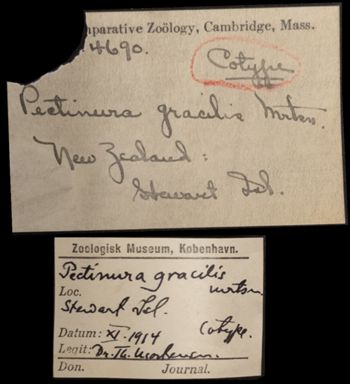 mparative Zoölogy, Cambridge, Mass.
4690.
Cotype
Pectinura gracilis Mrtsn.
New Zealand:
Stewart Isl.
Zoologisk Museum, København.
Pectinura gracilis
Loc. mrtsn.
Stewart Isl.
Datum: XI. 1914 Cotype.
Legit: Dr. Th. Mortensen.
Don. Journal.